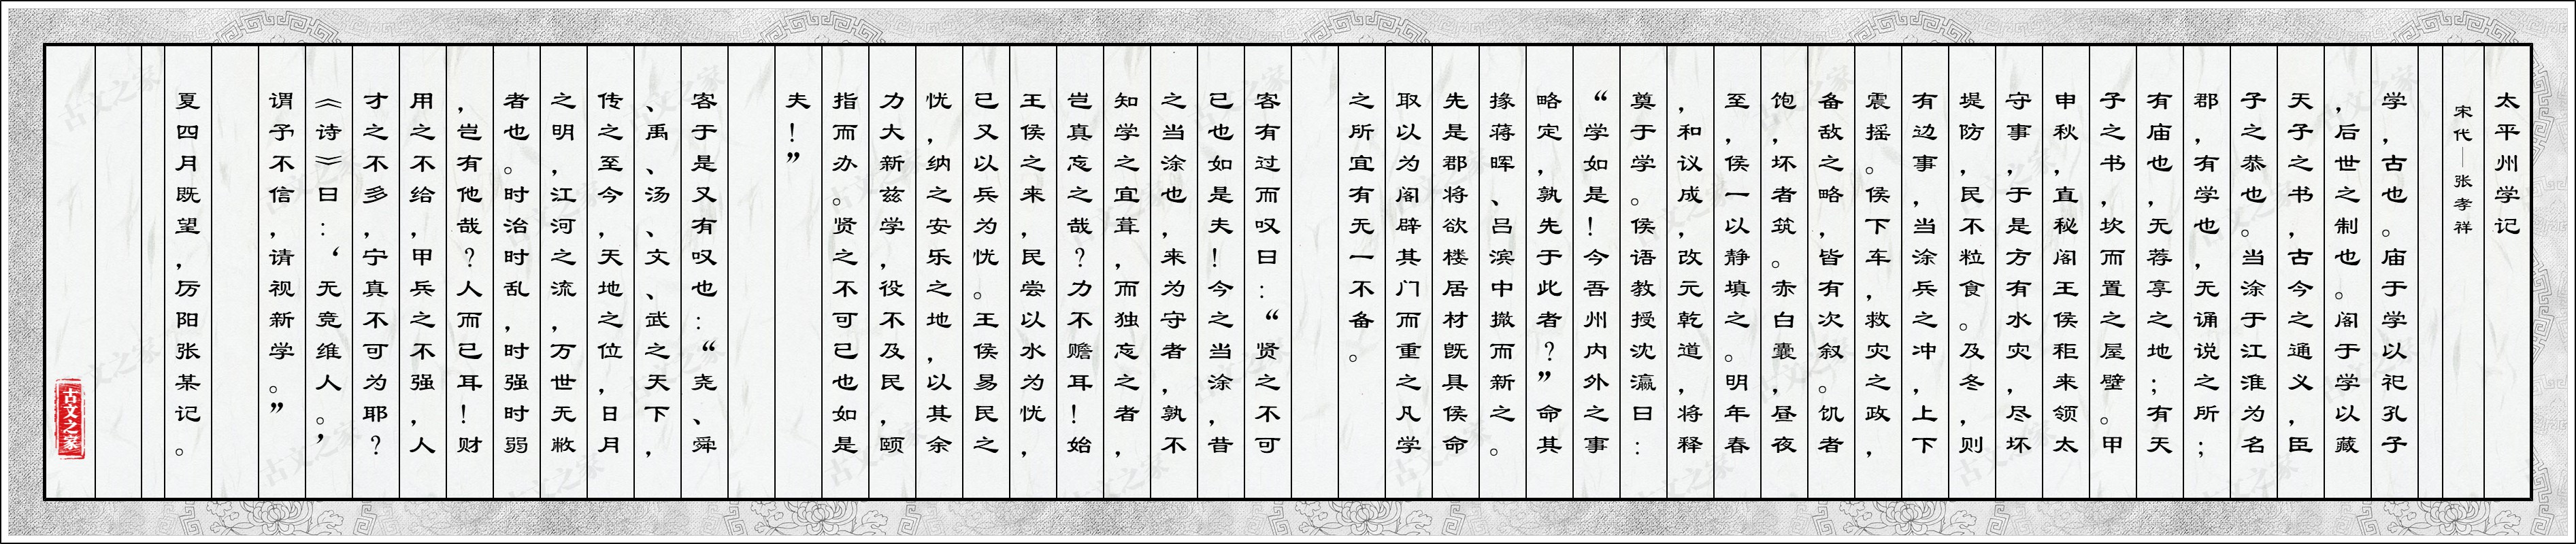 太平州学记
宋代—张孝祥
学，古也。庙于学以祀孔子
，后世之制也。阁于学以藏
天子之书，古今之通义，臣
子之恭也。当涂于江淮为名
郡，有学也，无诵说之所；
有庙也，无荐享之地；有天
子之书，坎而置之屋壁。甲
申秋，直秘阁王侯秬来领太
守事，于是方有水灾，尽坏
堤防，民不粒食。及冬，则
有边事，当涂兵之冲，上下
震摇。侯下车，救灾之政，
备敌之略，皆有次叙。饥者
饱，坏者筑。赤白囊，昼夜
至，侯一以静填之。明年春
，和议成，改元乾道，将释
奠于学。侯语教授沈瀛曰：
“学如是！今吾州内外之事
略定，孰先于此者？”命其
掾蒋晖、吕滨中撤而新之。
先是郡将欲楼居材既具侯命
取以为阁辟其门而重之凡学
之所宜有无一不备。
客有过而叹曰：“贤之不可
已也如是夫！今之当涂，昔
之当涂也，来为守者，孰不
知学之宜葺，而独忘之者，
岂真忘之哉？力不赡耳！始
王侯之来，民尝以水为忧，
已又以兵为忧。王侯易民之
忧，纳之安乐之地，以其余
力大新兹学，役不及民，颐
指而办。贤之不可已也如是
夫！”
客于是又有叹也：“尧、舜
、禹、汤、文、武之天下，
传之至今，天地之位，日月
之明，江河之流，万世无敝
者也。时治时乱，时强时弱
，岂有他哉？人而已耳！财
用之不给，甲兵之不强，人
才之不多，宁真不可为耶？
《诗》曰：‘无竞维人。’
谓予不信，请视新学。”
夏四月既望，厉阳张某记。
古文之家